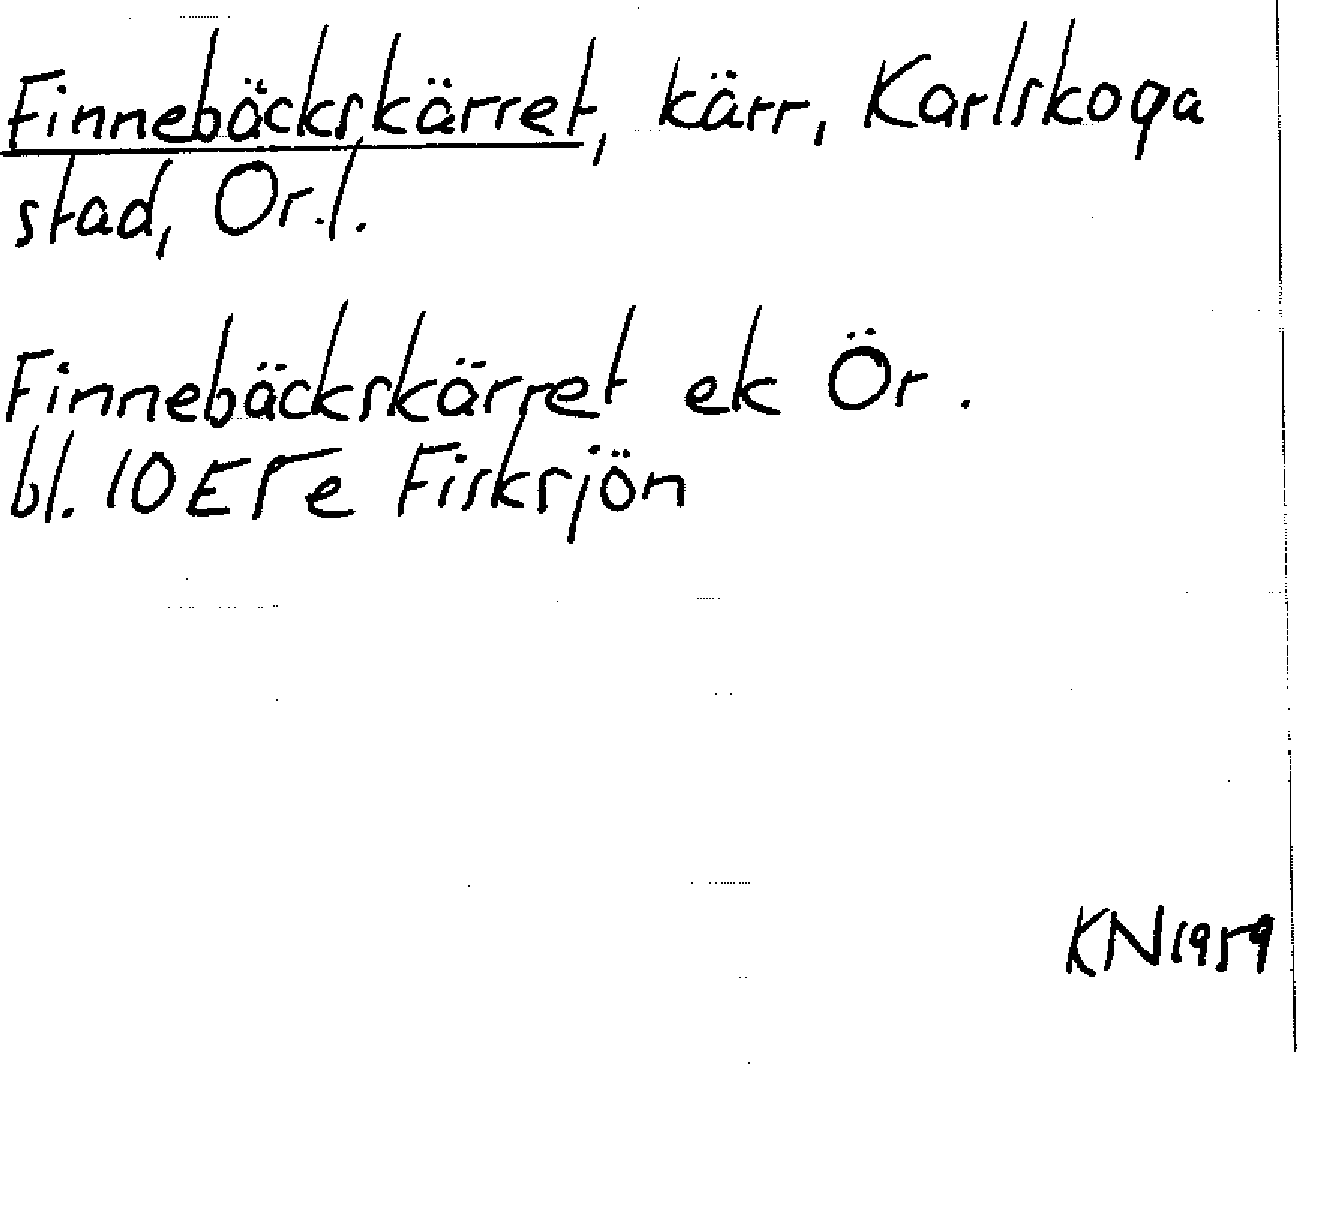 Finnebäckskärret, kärr, Karlskoga
stad, Ör.l.
Finnebäckskärret ek Ör.
bl. 10E5e Fisksjön
KN1959